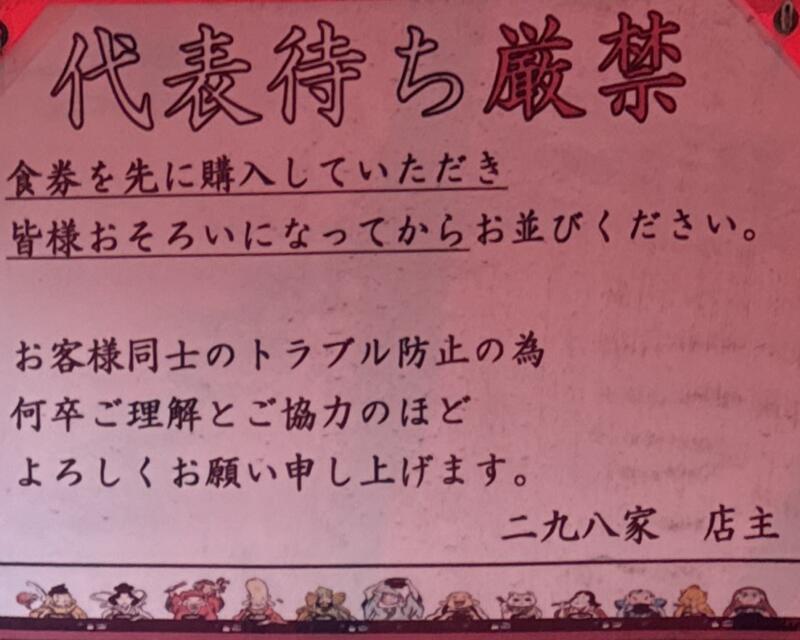 代表待ち厳禁
食券を先に購入していただき
皆様おそろいになってからお並びください。
お客様同士のトラブル防止の為
何卒ご理解とご協力のほど
よろしくお願い申し上げます。
二九八家　店主